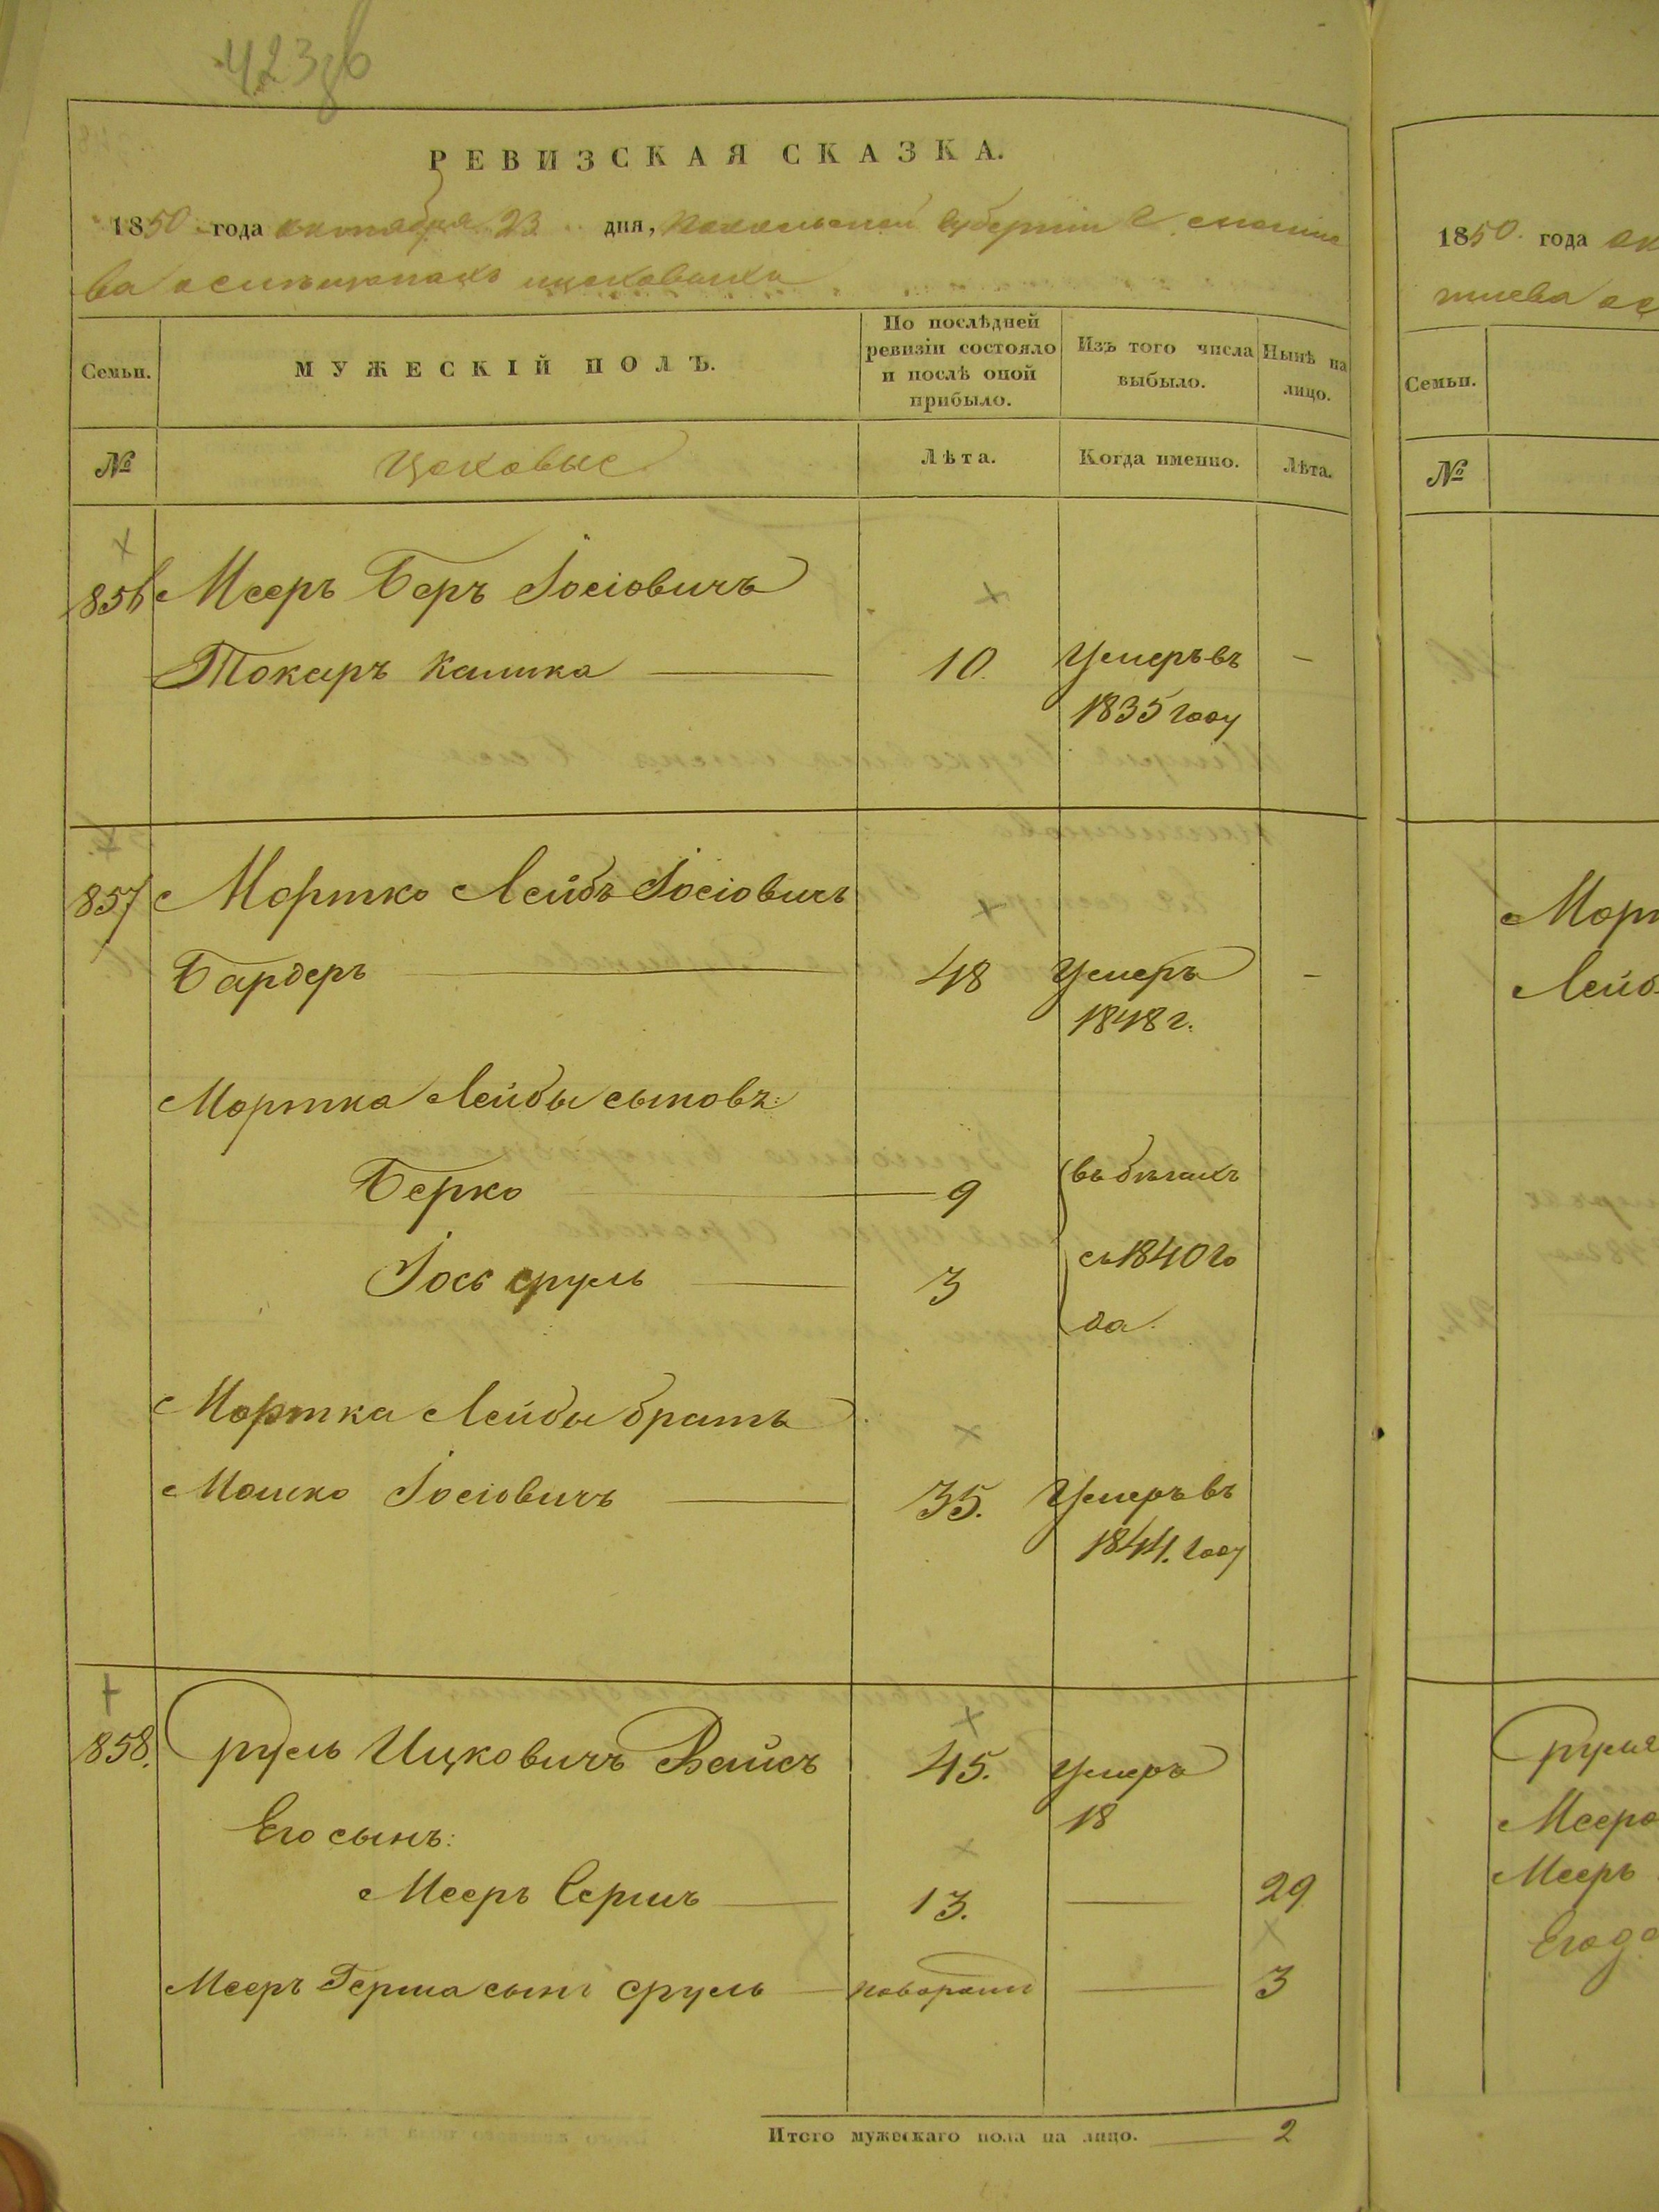 423 об
РЕВИЗСКАЯ СКАЗКА.
1850 года октября 23 дня, Подольской Губернии г. Могиле
ва о цеховыхъ
Семьи.
МУЖЕСКІЙ ПОЛЪ.
По послѣдней ревизіи состояло и послѣ оной прибыло.
Изъ того числа выбыло.
Нынѣ на лицо.
№
Цеховые
Лѣта.
Когда именно.
Лѣта.
856 Мееръ Беръ Іосіовичъ
Токаръ Камика 10. Умеръ въ —
1835 году
857 Мортко Лейбъ Іосіовичъ
Бардеръ 48 Умеръ —
1848 г.
Мортка Лейбы сыновъ:
Берко 9 въ бѣгахъ
Іось сруль 3 съ 1840 го
да.
Мортка Лейбы братъ
Мошко Іосіовичъ 35. Умеръ въ
1844. году
858. Сруль Ицковичъ Вайсъ 45. Умеръ
18
Его сынъ:
Мееръ Гершъ 13. — 29
Мееръ Герша сынъ сруль новорож — 3
Итого мужескаго пола на лицо. 2
1850. года ок
гилева
Семьи.
№
Морт
Лейб
Сруля
Меера
Мееръ
Его до